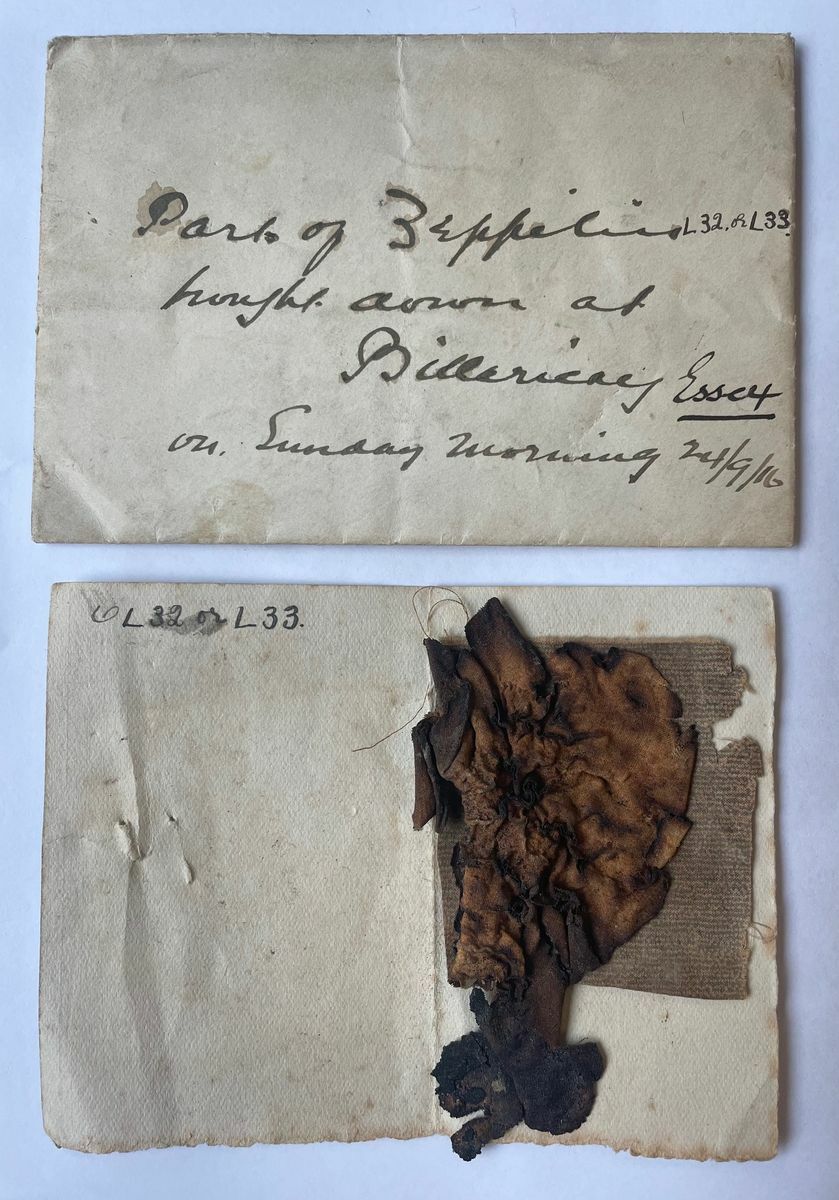 Part of Zeppelin L32. or L33.
brought down at
Billericay Essex
on. Sunday Morning 24/9/16
L32 or L33.